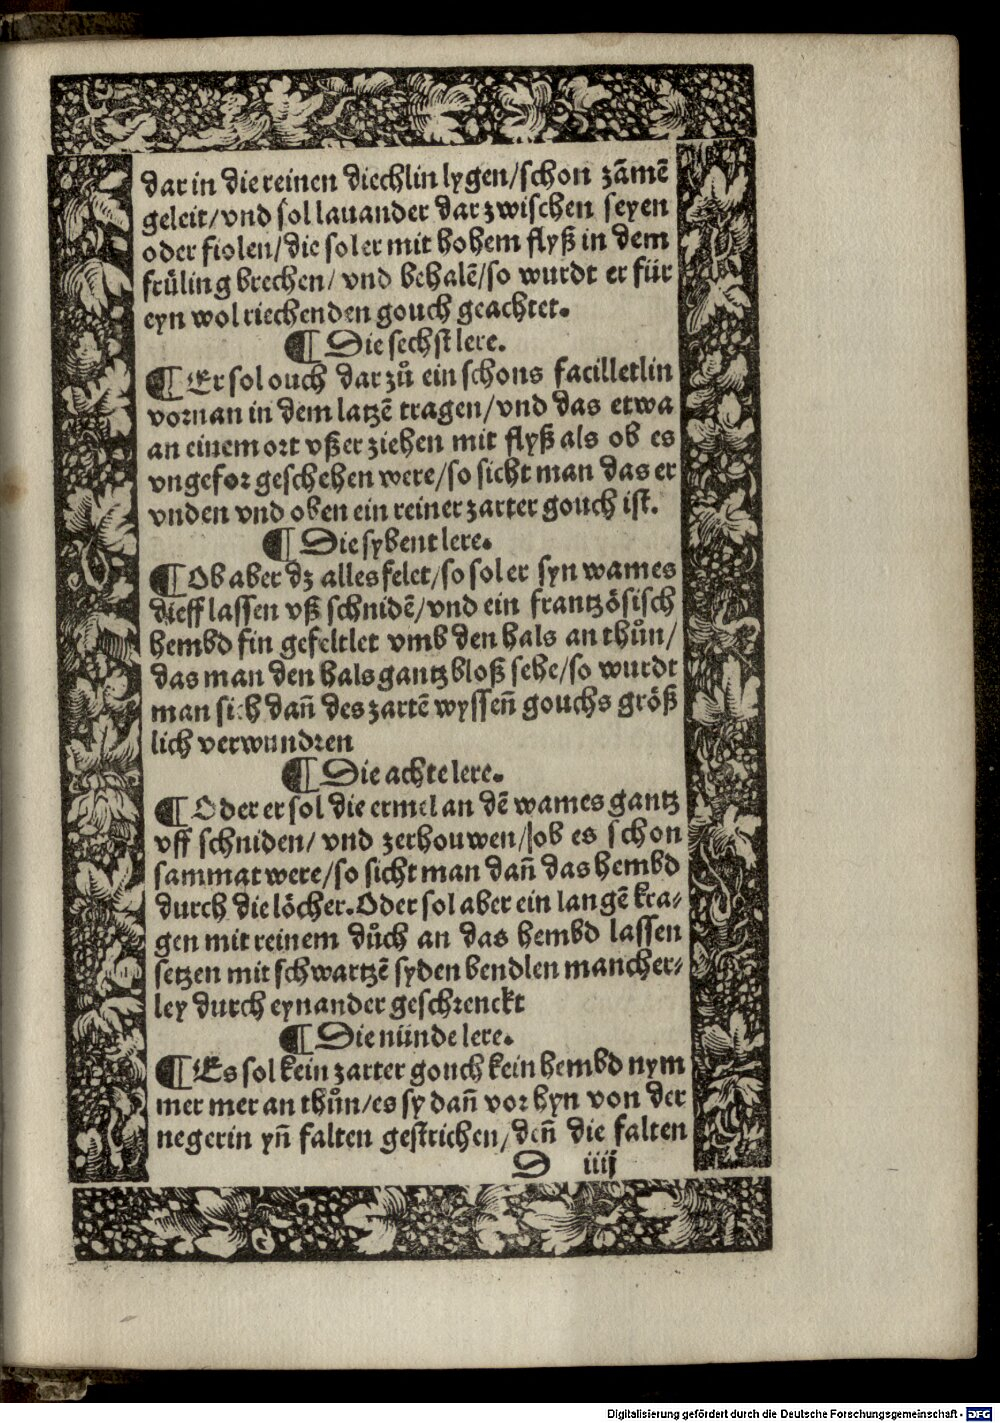 dar in die reinen diechlin lygen/schon zãmẽ
geleit/vnd sol lauander dar zwischen seyen
oder fiolen/die sol er mit hohem flyß in dem
frűling brechen/ vnd behalẽ/so wurdt er für
eyn wol riechenden gouch geachtet.
¶ Die sechst lere.
¶ Er sol ouch dar zů ein schons facilletlin
vornan in dem latzẽ tragen/vnd das etwa
an einem ort vßer ziehen mit flyß als ob es
vngefor geschehen were/so sicht man das er
vnden vnd oben ein reiner zarter gouch ist.
¶ Die sybent lere.
¶ Ob aber dz alles felet/so sol er syn wames
dieff lassen vß schnidẽ/vnd ein frantzösisch
hembd fin gefeltlet vmb den hals an thůn/
das man den hals gantz bloß sehe/so wurdt
man sich dañ des zartẽ wyssen̄ gouchs größ
lich verwundren
¶ Die achte lere.
¶ Oder er sol die ermel an dẽ wames gantz
vff schniden/ vnd zerhouwen/ob es schon
sammat were/so sicht man dañ das hembd
durch die löcher. Oder sol aber ein langẽ kra⸗
gen mit reinem důch an das hembd lassen
setzen mit schwartzẽ syden bendlen mancher⸗
ley durch eynander geschrenckt
¶ Die nünde lere.
¶ Es sol kein zarter gouch kein hembd nym
mer mer an thůn/es sy dañ vor hyn von der
negerin yñ falten gestrichen/deñ die falten
D iiij
Digitalisierung gefördert durch die Deutsche Forschungsgemeinschaft - DFG